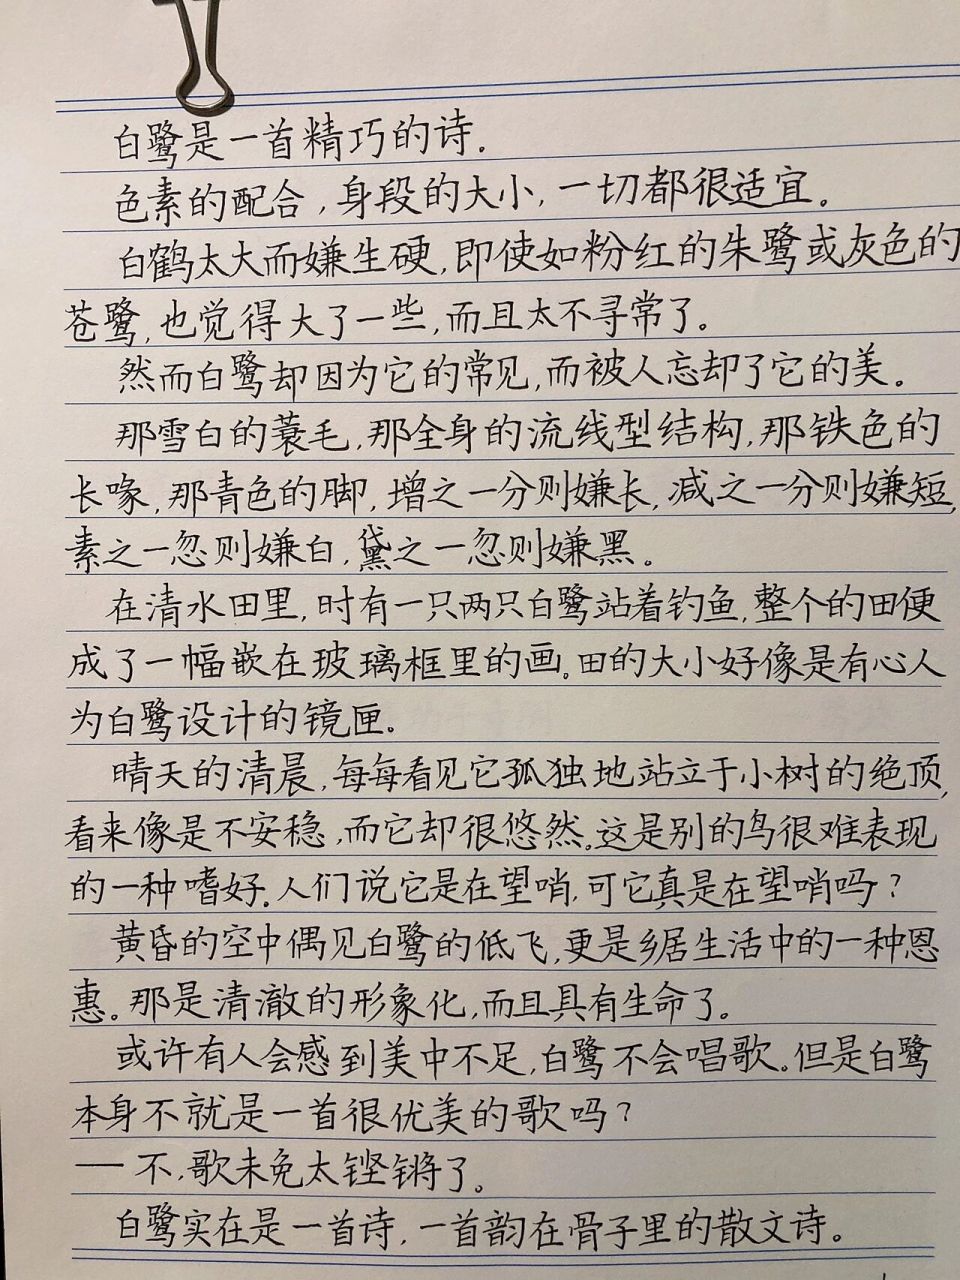 白鹭是一首精巧的诗.
色素的配合,身段的大小,一切都很适宜。
白鹤太大而嫌生硬,即使如粉红的朱鹭或灰色的
苍鹭,也觉得大了一些,而且太不寻常了。
然而白鹭却因为它的常见,而被人忘却了它的美。
那雪白的蓑毛,那全身的流线型结构,那铁色的
长喙,那青色的脚,增之一分则嫌长,减之一分则嫌短,
素之一忽则嫌白,黛之一忽则嫌黑。
在清水田里,时有一只两只白鹭站着钓鱼,整个的田便
成了一幅嵌在玻璃框里的画。田的大小好像是有心人
为白鹭设计的镜匣。
晴天的清晨,每每看见它孤独地站立于小树的绝顶,
看来像是不安稳,而它却很悠然。这是别的鸟很难表现
的一种嗜好。人们说它是在望哨,可它真是在望哨吗?
黄昏的空中偶见白鹭的低飞,更是乡居生活中的一种恩
惠。那是清澈的形象化,而且具有生命了。
或许有人会感到美中不足,白鹭不会唱歌。但是白鹭
本身不就是一首很优美的歌吗?
— 不,歌未免太铿锵了。
白鹭实在是一首诗,一首韵在骨子里的散文诗。